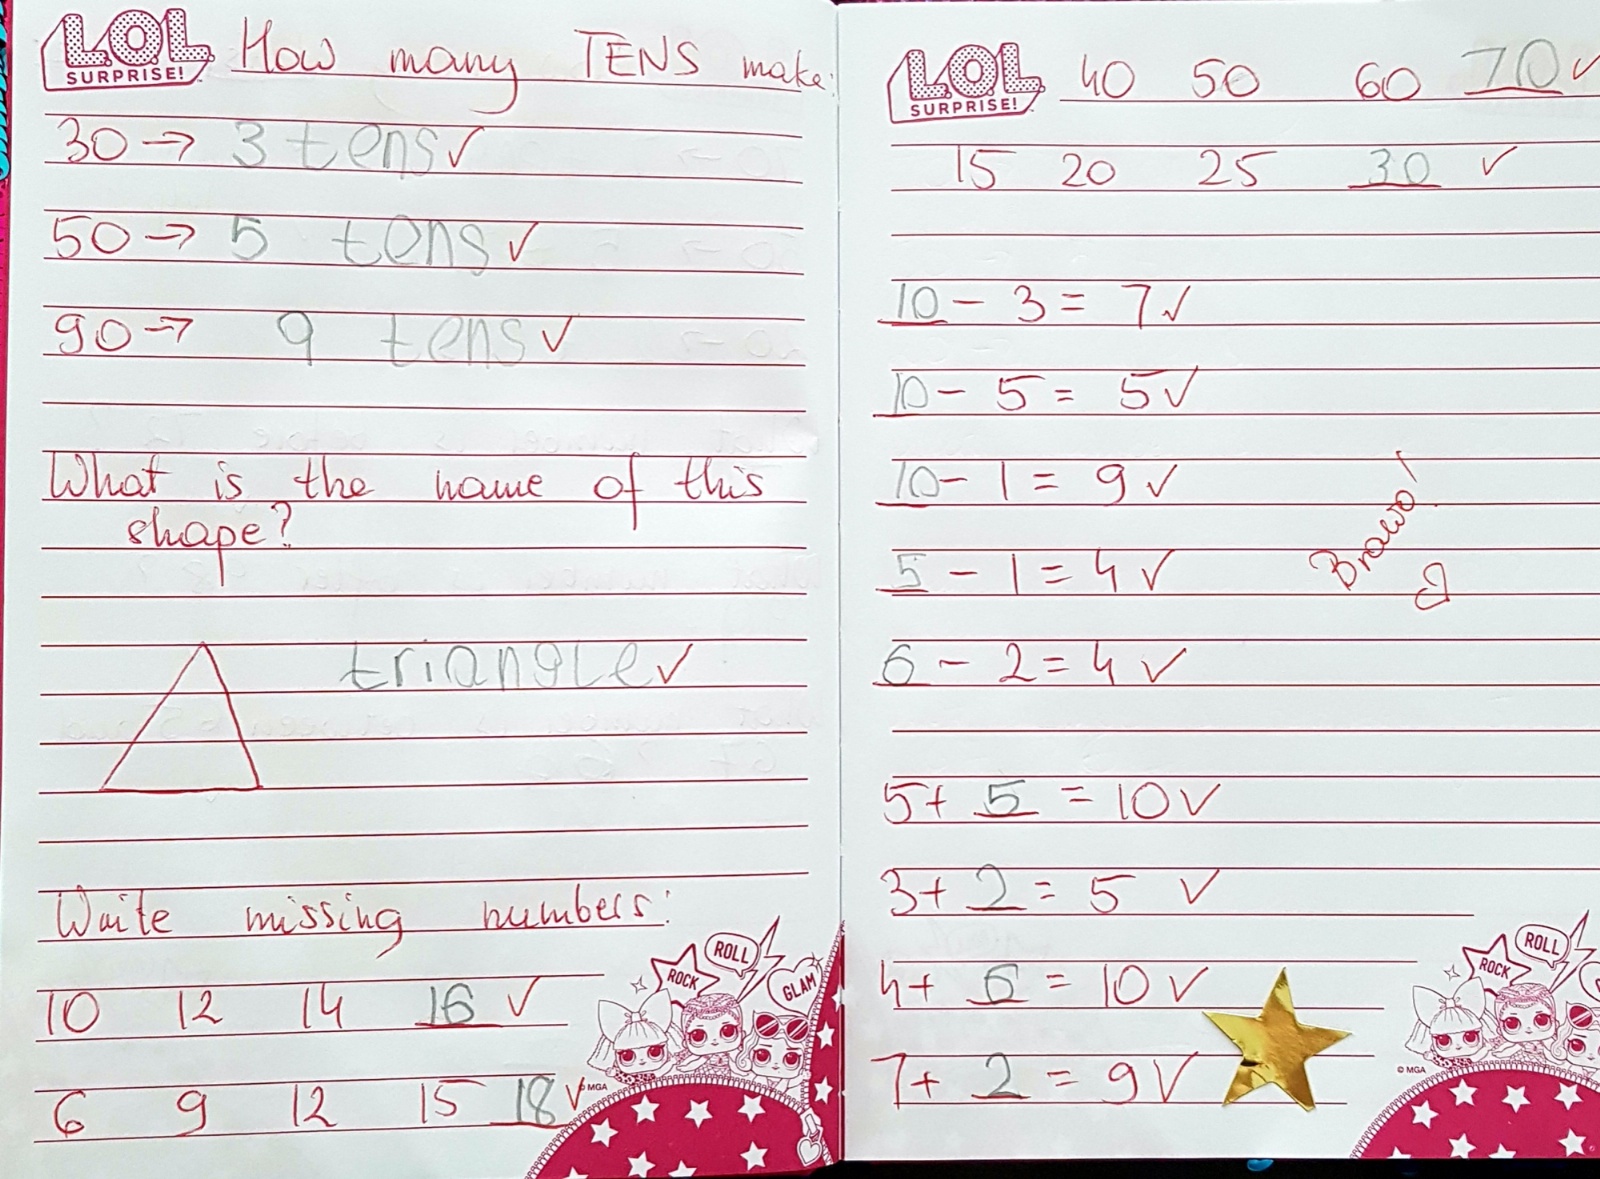 L.O.L. SURPRISE!
How many TENS make:
30 → 3 tens ✓
50 → 5 tens ✓
90 → 9 tens ✓
What is the name of this
shape?
triangle ✓
Write missing numbers:
10 12 14 16 ✓
6 9 12 15 18 ✓
ROCK
ROLL
GLAM
© MGA
L.O.L. SURPRISE!
40 50 60 70 ✓
15 20 25 30 ✓
10 - 3 = 7 ✓
10 - 5 = 5 ✓
10 - 1 = 9 ✓
5 - 1 = 4 ✓
6 - 2 = 4 ✓
Brawo!
5 + 5 = 10 ✓
3 + 2 = 5 ✓
4 + 6 = 10 ✓
7 + 2 = 9 ✓
ROCK
ROLL
© MGA